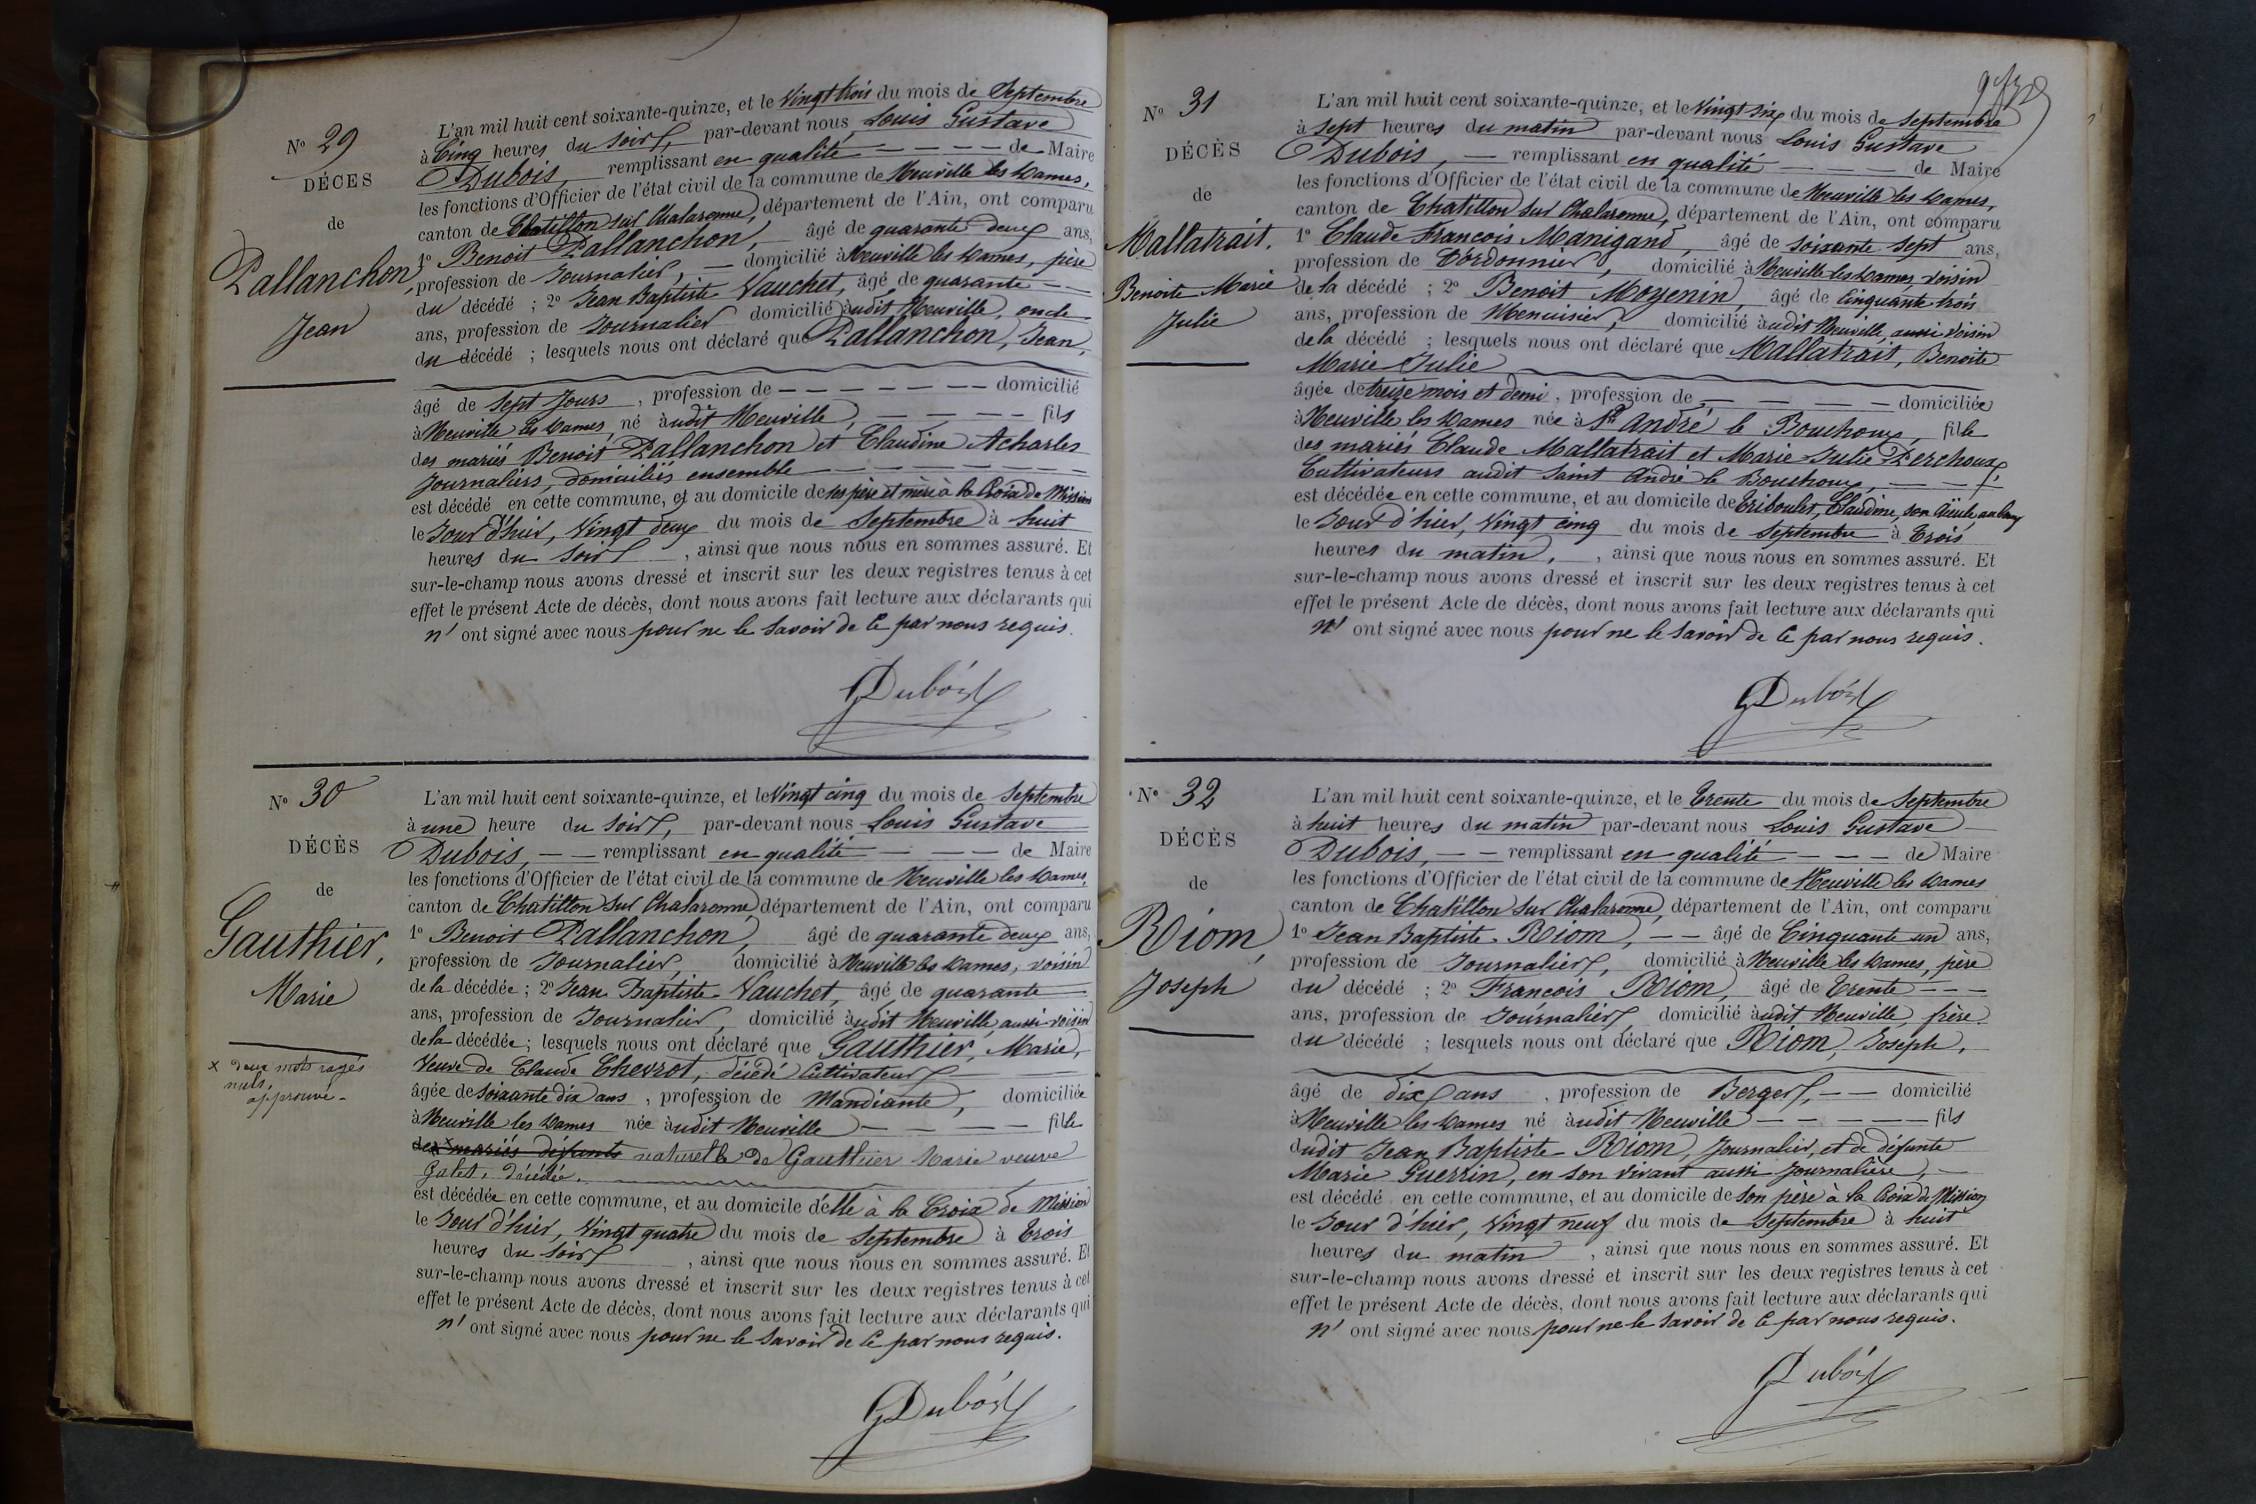 Nº 29
DÉCES
de
Pallanchon,
Jean
L'an mil huit cent soixante-quinze, et le Vingt trois du mois de Septembre
à Cinq heures du soir, par-devant nous Louis Gustave
Dubois, remplissant en qualité de Maire
les fonctions d'Officier de l'état civil de la commune de Neuville les Dames,
canton de Chatillon sur Chalaronne, département de l'Ain, ont comparu
1º Benoit Pallanchon, âgé de quarante deux ans,
profession de Journalier, domicilié à Neuville les Dames, père
du décédé ; 2º Jean Baptiste Vauchet, âgé de quarante
ans, profession de Journalier domicilié audit Neuville, oncle
du décédé ; lesquels nous ont déclaré que Pallanchon, Jean,
âgé de sept Jours, profession de domicilié
à Neuville les Dames né audit Neuville, fils
des mariés Benoit Pallanchon et Claudine Acharles
Journaliers, domiciliés ensemble
est décédé en cette commune, et au domicile de ses père et mère à la Croix de Mission
le Jour d'hier, Vingt deux du mois de Septembre à huit
heures du soir, ainsi que nous nous en sommes assuré. Et
sur-le-champ nous avons dressé et inscrit sur les deux registres tenus à cet
effet le présent Acte de décès, dont nous avons fait lecture aux déclarants qui
n' ont signé avec nous pour ne le savoir de ce par nous requis.
GDubois
Nº 30
DÉCÈS
de
Gauthier,
Marie
x deux mots rayés
nuls,
approuvé -
L'an mil huit cent soixante-quinze, et le Vingt cinq du mois de Septembre
à une heure du soir, par-devant nous Louis Gustave
Dubois, remplissant en qualité de Maire
les fonctions d'Officier de l'état civil de la commune de Neuville les Dames,
canton de Chatillon sur Chalaronne, département de l'Ain, ont comparu
1º Benoit Pallanchon, âgé de quarante deux ans,
profession de Journalier, domicilié à Neuville les Dames, voisin
de la décédée ; 2º Jean Baptiste Vauchet, âgé de quarante
ans, profession de Journalier, domicilié audit Neuville, aussi voisin
de la décédée ; lesquels nous ont déclaré que Gauthier, Marie,
Veuve de Claude Chevrot, décédé Cultivateur
âgée de soixante dix ans, profession de Mandiante, domiciliée
à Neuville les Dames née audit Neuville fille
des x mariés défunts naturelle de Gauthier Marie veuve
Galet, décédée.
est décédée en cette commune, et au domicile d'elle à la Croix de Mission
le Jour d'hier, Vingt quatre du mois de Septembre à Trois
heures du soir, ainsi que nous nous en sommes assuré. Et
sur-le-champ nous avons dressé et inscrit sur les deux registres tenus à cet
effet le présent Acte de décès, dont nous avons fait lecture aux déclarants qui
n' ont signé avec nous pour ne le savoir de ce par nous requis.
GDubois
Nº 31
DÉCÈS
de
Mallatrait,
Benoite Marie
Julie
L'an mil huit cent soixante-quinze, et le Vingt six du mois de Septembre
à sept heures du matin par-devant nous Louis Gustave
Dubois, remplissant en qualité de Maire
les fonctions d'Officier de l'état civil de la commune de Neuville les Dames,
canton de Chatillon sur Chalaronne, département de l'Ain, ont comparu
1º Claude François Manigand, âgé de soixante sept ans,
profession de Cordonnier, domicilié à Neuville les Dames, voisin
de la décédé ; 2º Benoit Moyenin, âgé de Cinquante trois
ans, profession de Menuisier, domicilié audit Neuville, aussi voisin
de la décédé ; lesquels nous ont déclaré que Mallatrait, Benoite
Marie Julie
âgée de treize mois et demi, profession de domiciliée
à Neuville les Dames née à St André le Bouchoux, fille
des mariés Claude Mallatrait et Marie Julie Perchoux,
Cultivateurs audit Saint André le Bouchoux,
est décédée en cette commune, et au domicile de Triboulet, Claudine, son aïeule, au bourg
le Jour d'hier, Vingt cinq du mois de Septembre à Trois
heures du matin, ainsi que nous nous en sommes assuré. Et
sur-le-champ nous avons dressé et inscrit sur les deux registres tenus à cet
effet le présent Acte de décès, dont nous avons fait lecture aux déclarants qui
n' ont signé avec nous pour ne le savoir de ce par nous requis.
GDubois
Nº 32
DÉCÈS
de
Riom,
Joseph
L'an mil huit cent soixante-quinze, et le Trente du mois de Septembre
à huit heures du matin par-devant nous Louis Gustave
Dubois, remplissant en qualité de Maire
les fonctions d'Officier de l'état civil de la commune de Neuville les Dames
canton de Chatillon sur Chalaronne, département de l'Ain, ont comparu
1º Jean Baptiste Riom, âgé de Cinquante un ans,
profession de Journalier, domicilié à Neuville les Dames, père
du décédé ; 2º François Riom, âgé de Trente
ans, profession de Journalier, domicilié audit Neuville, frère
du décédé ; lesquels nous ont déclaré que Riom, Joseph,
âgé de dix ans, profession de Berger, domicilié
à Neuville les Dames né audit Neuville fils
dudit Jean Baptiste Riom, Journalier, et de défunte
Marie Guerrin, en son vivant aussi Journalière,
est décédé en cette commune, et au domicile de son père à la Croix de Mission
le Jour d'hier, Vingt neuf du mois de Septembre à huit
heures du matin, ainsi que nous nous en sommes assuré. Et
sur-le-champ nous avons dressé et inscrit sur les deux registres tenus à cet
effet le présent Acte de décès, dont nous avons fait lecture aux déclarants qui
n' ont signé avec nous pour ne le savoir de ce par nous requis.
GDubois